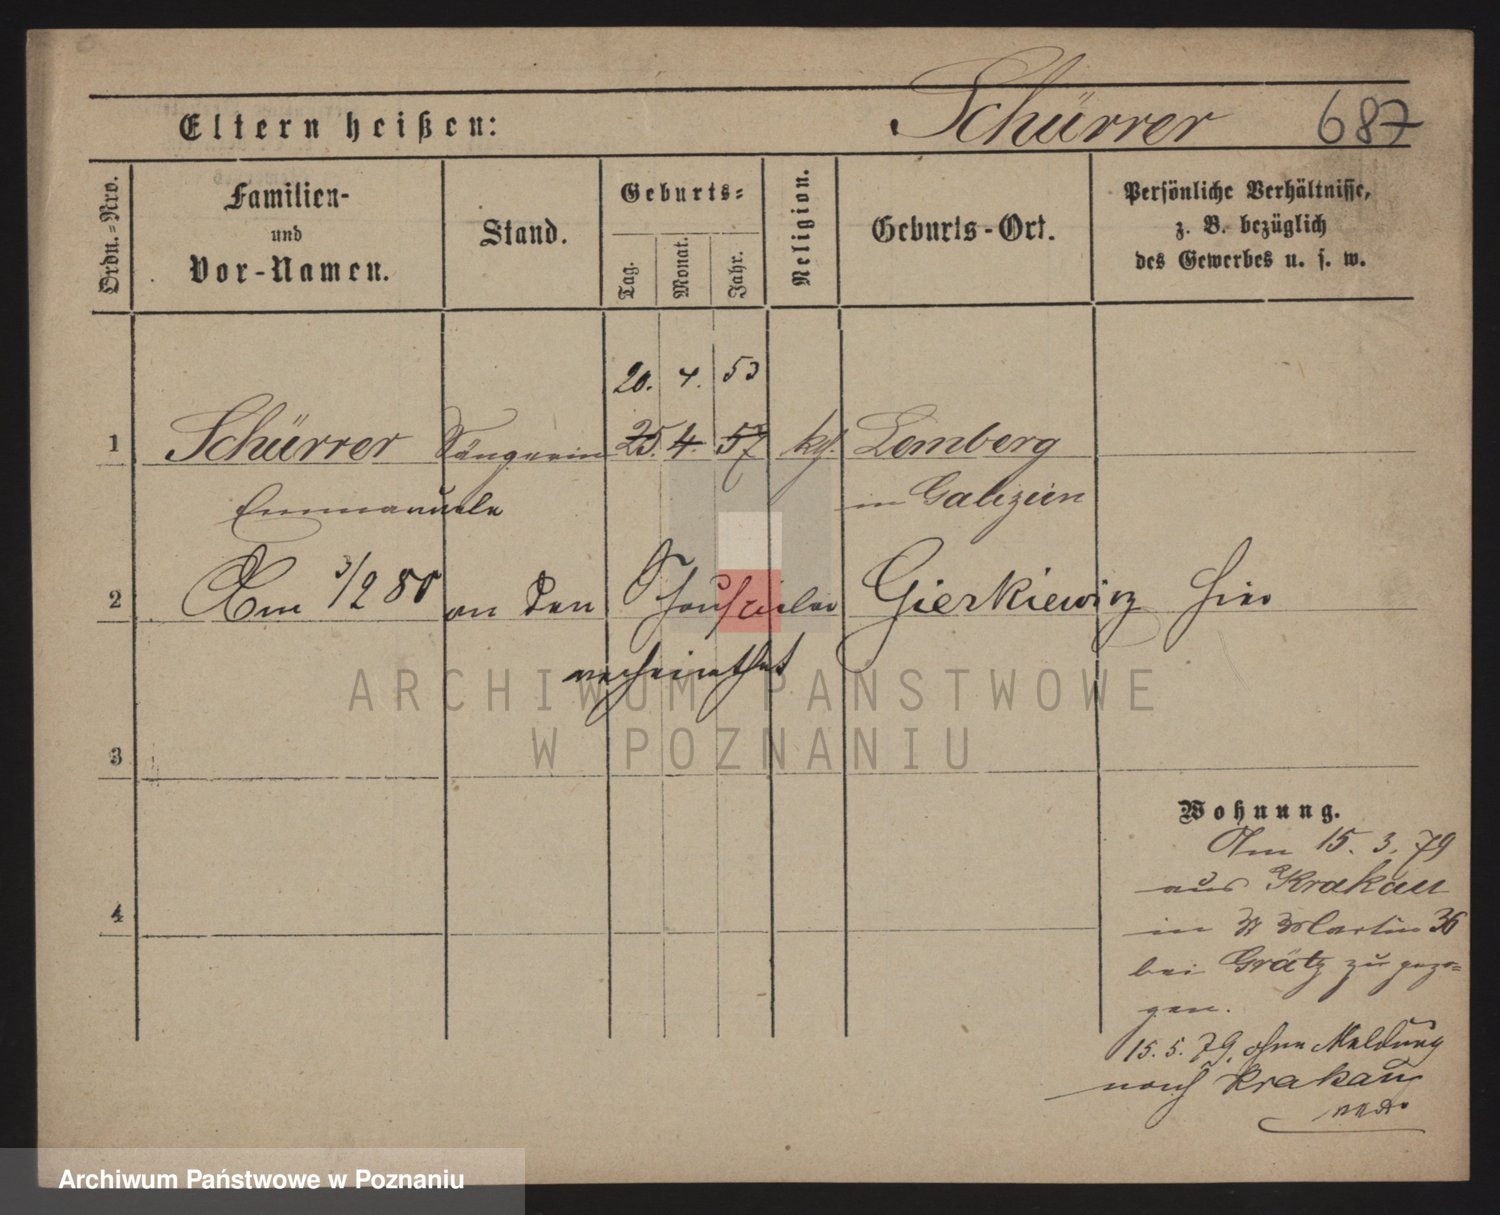 Eltern heißen: Schürrer 687
Ordn.-Nro. Familien- und Vor-Namen. Stand. Geburts- Tag. Monat. Jahr. Religion. Geburts-Ort. Persönliche Verhältnisse, z. B. bezüglich des Gewerbes u. s. w.
20. 4. 53
1 Schürrer Sängerin 25. 4. 57 kth. Lemberg
Emmanuele in Galizien
2 Am 3/2 80 an den Schauspieler Gierkiewicz hier
verheirathet
ARCHIWUM PAŃSTWOWE
W POZNANIU
3
Wohnung.
Am 15. 3. 79
aus Krakau
4
in St Martin 36
bei Grätz zu gezo=
gen.
15. 5. 79. ohne Meldung
nach Krakau
Archiwum Państwowe w Poznaniu